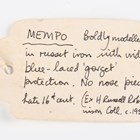 MEMPO Boldly modelled
in russet iron with wide
blue-laced 'gorget'
protection. No nose piece
Late 16th cent (Ex H Russell Rob
inson Coll.